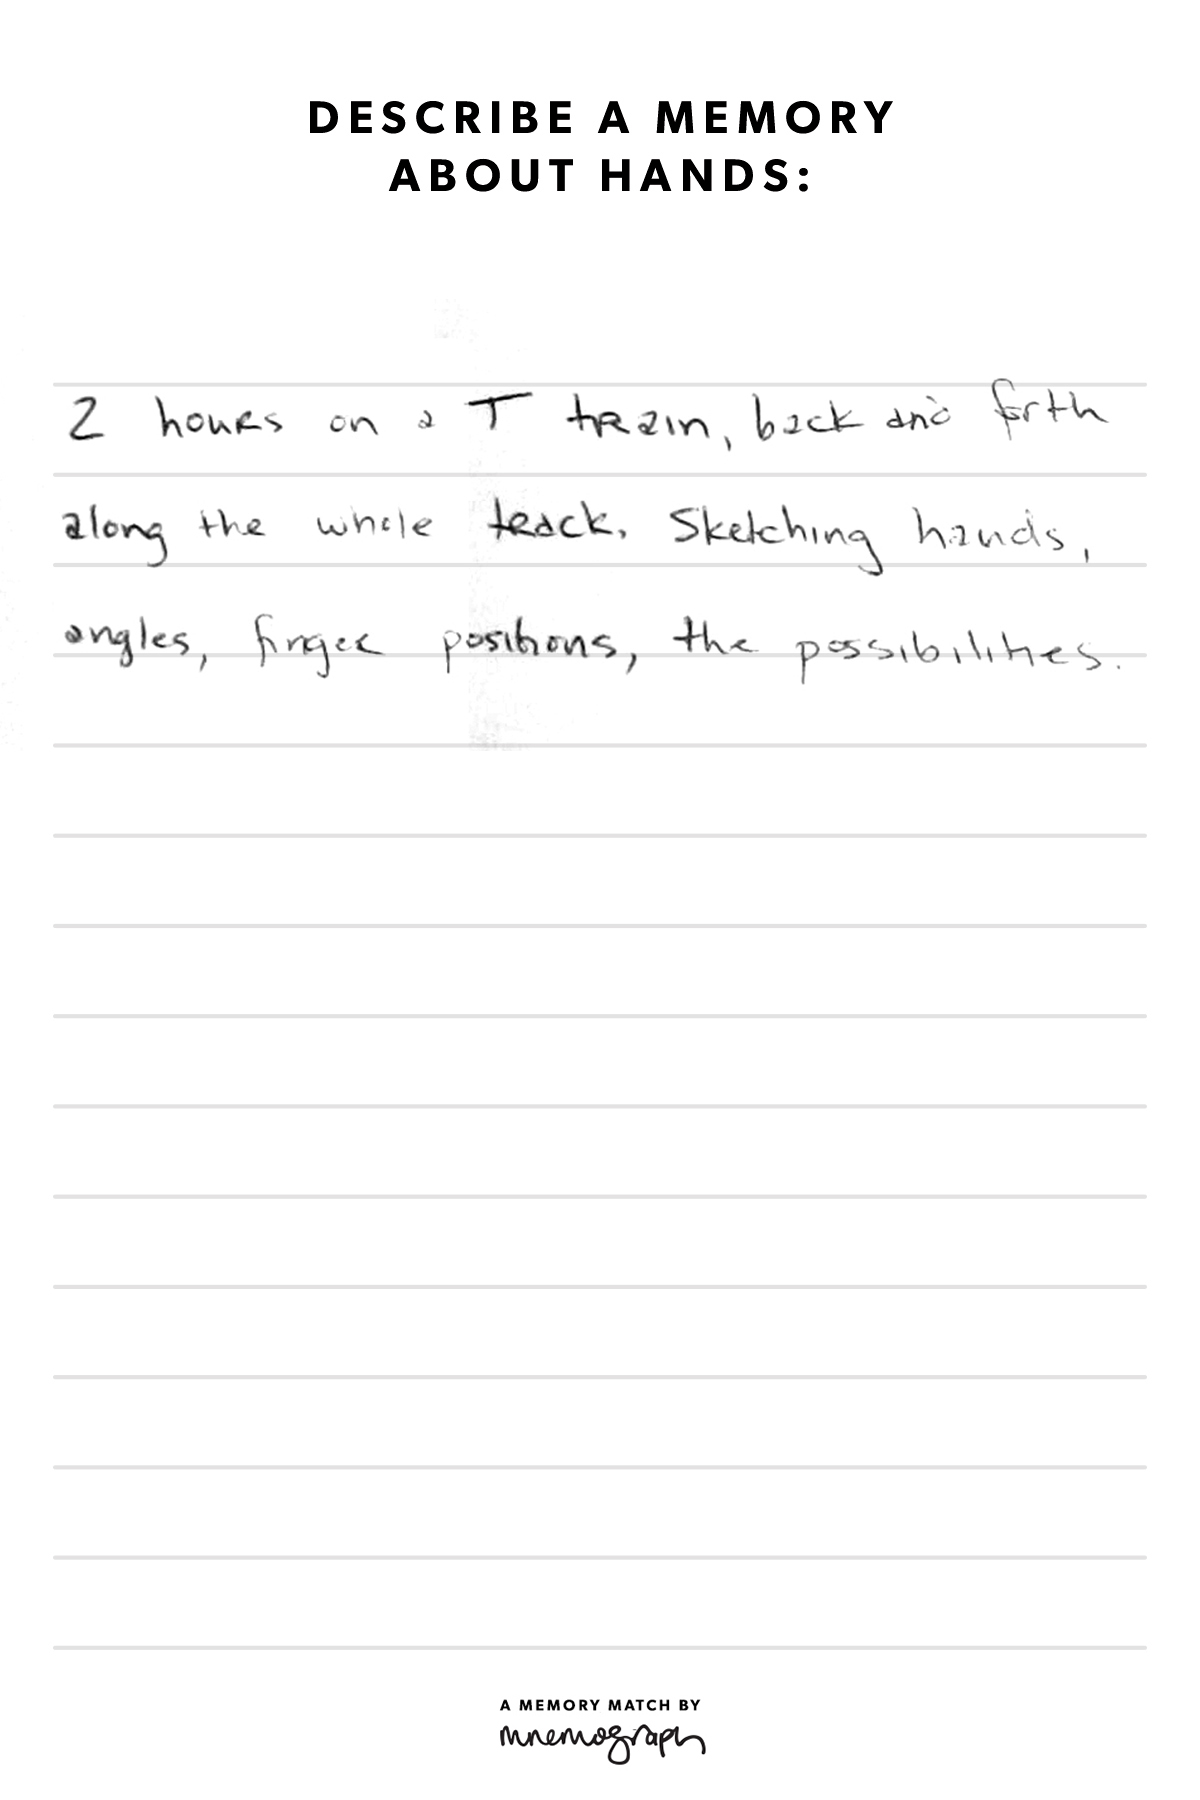 DESCRIBE A MEMORY
ABOUT HANDS:
2 hours on a T train, back and forth
along the whole track. Sketching hands,
angles, finger positions, the possibilities.
A MEMORY MATCH BY
mnemograph